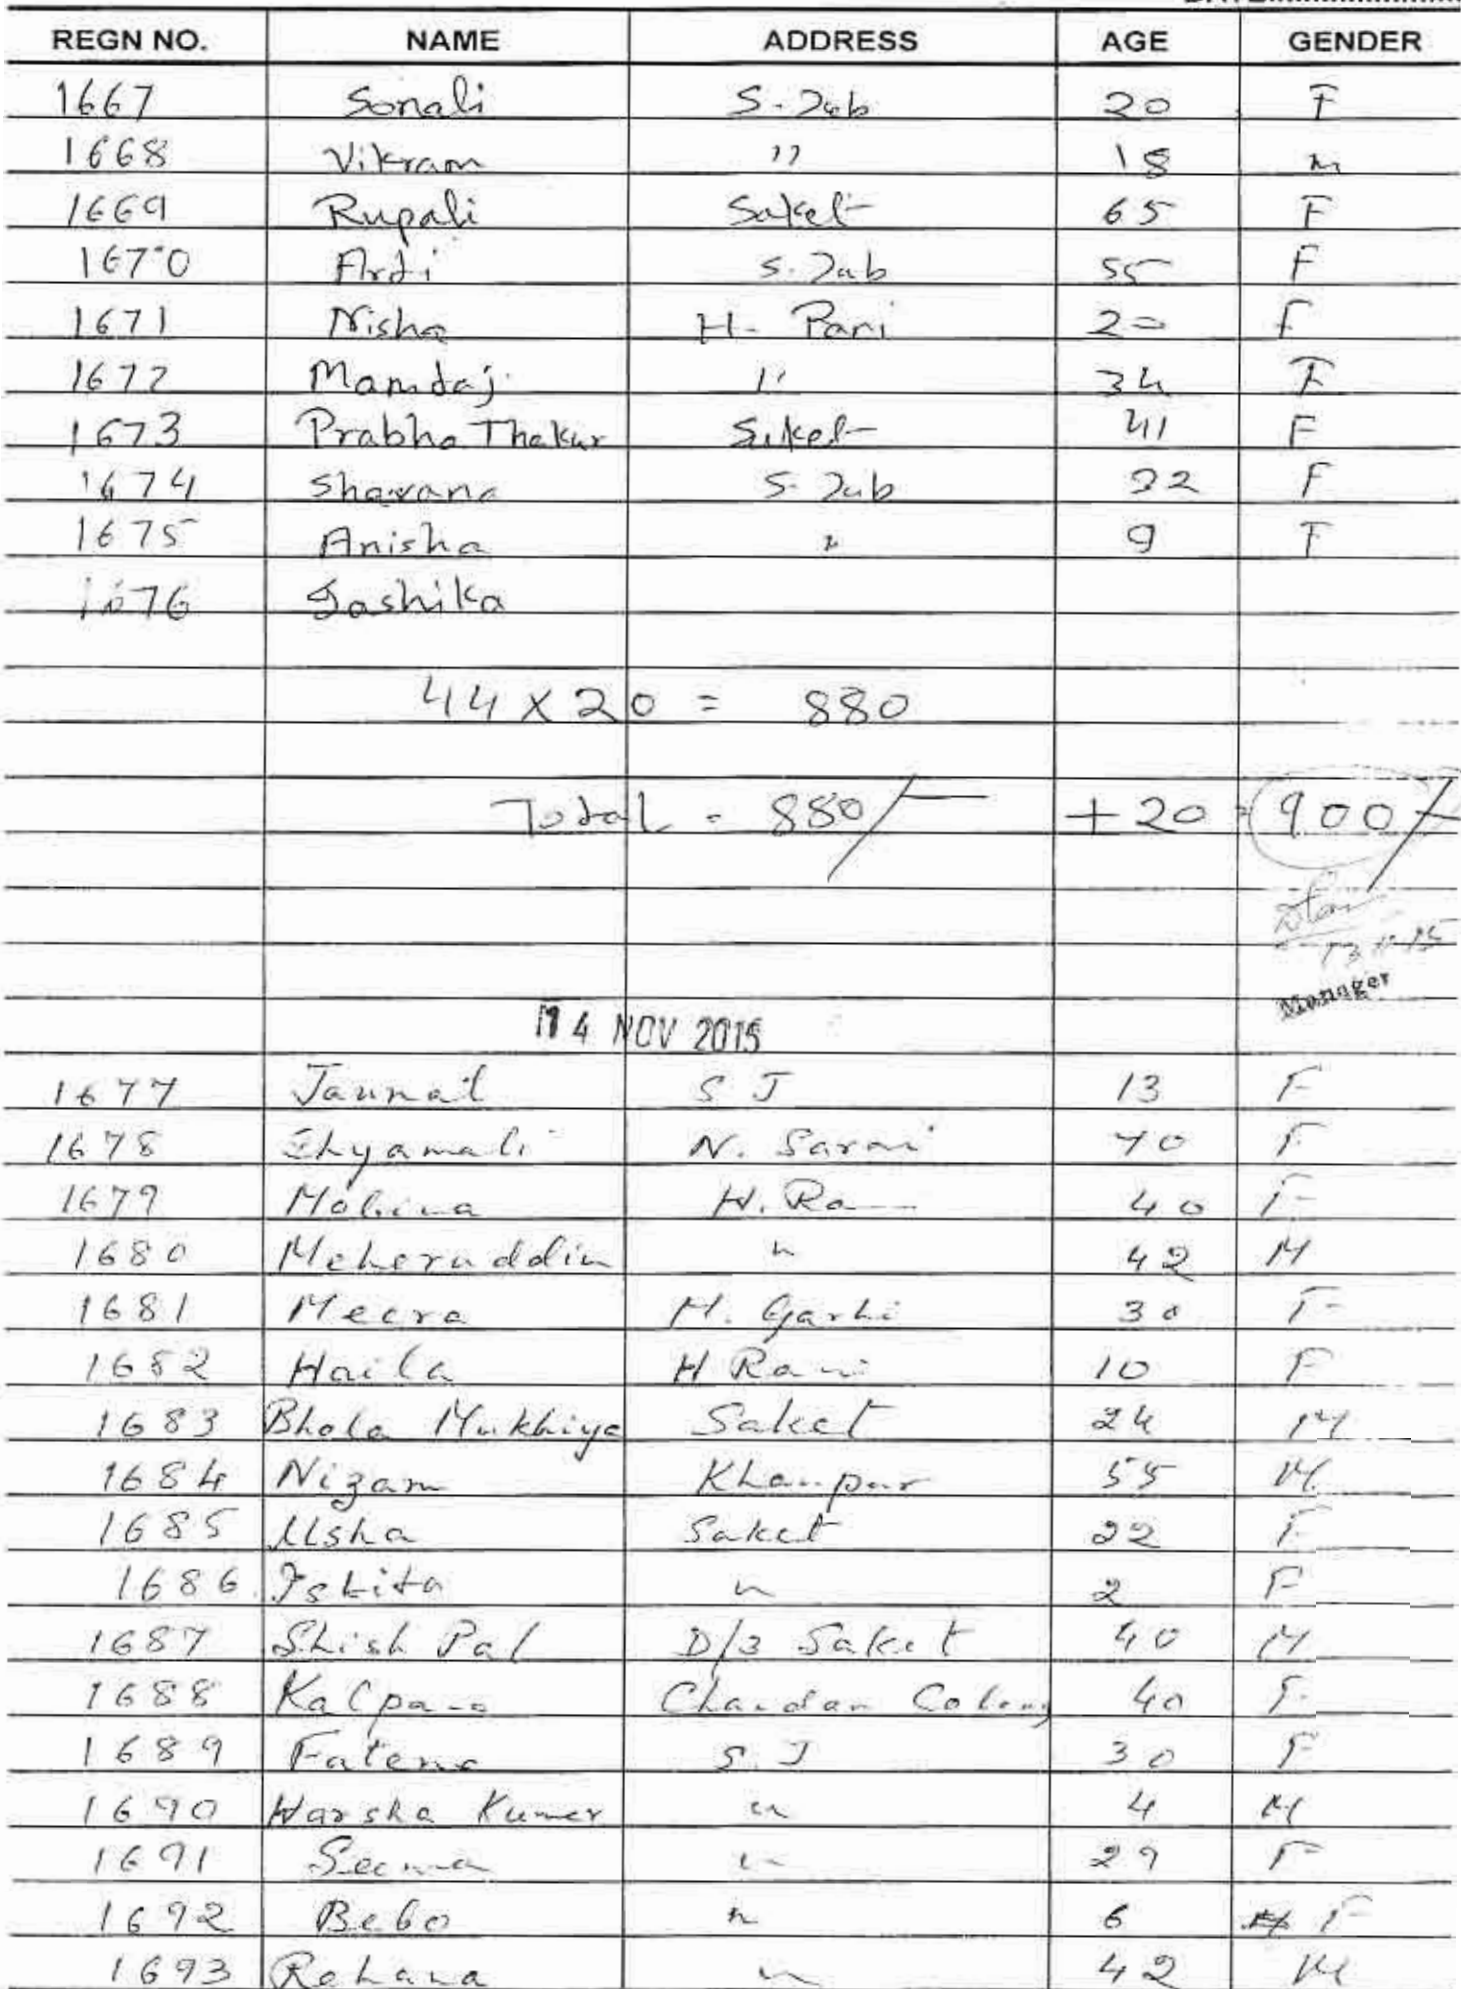 REGN NO. NAME ADDRESS AGE GENDER
1667 Sonali S. Jab 20 F
1668 Vikram " 18 m
1669 Rupali Saket 65 F
1670 Arti S. Jab 55 F
1671 Nisha H- Rani 20 F
1672 Mamtaj " 34 F
1673 Prabha Thakur Saket 41 F
1674 Shavana S- Jab 32 F
1675 Anisha " 9 F
1676 Jashika
44 X 20 = 880
Total = 880/- + 20 = 900/-
13-11-15
Manager
14 NOV 2015
1677 Jannat S J 13 F
1678 Shyamali N. Sarai 70 F
1679 Mobina H. Ra 40 F
1680 Meheruddin " 42 M
1681 Meera M. Garhi 30 F
1682 Haila H Rani 10 F
1683 Bhola Mukhiya Saket 24 M
1684 Nizam Khanpur 55 M
1685 Usha Saket 22 F
1686 Ishita " 2 F
1687 Shish Pal D/3 Saket 40 M
1688 Kalpana Chandan Colony 40 F
1689 Fatema S. J 30 F
1690 Harsha Kumar " 4 M
1691 Seema " 29 F
1692 Bebo " 6 F
1693 Rehana " 42 M